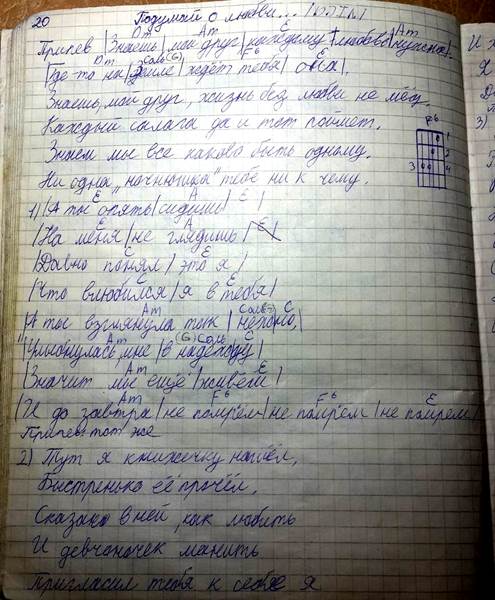 20 Подумай о любви...
Dm A Am
Припев |Знаешь| мой друг| каждому +любовь| нужна|.
Dm Соль(G) F6 E
|Где-то на| земле| ждёт тебя| она|.
Знаешь, мой друг, жизнь без любви не мёд.
Каждый салага да и тот поймет.
F6
Знаем мы все каково быть одному.
Ни одна „ночнюшка" тебе ни к чему.
3
E A E
1) |А ты опять| сидишь| |
E A E
|На меня| не глядишь| |
E
|Давно понял| это я|
E E
|Что влюбился| я в тебя|
Am C
|А ты взглянула так|
Am (G) Соль E
мне| в надежду|
Am E
|Значит мы ещё| живём|
Am F6 F6 E
|И до завтра| не помрём| не помрём| не помрем|
Припев тот же
2) Тут я книжечку нашёл,
Быстренько её прочёл.
Сказано в ней, как любить
И девчоночек манить
Пригласил тебя к себе я
И
Я
3)